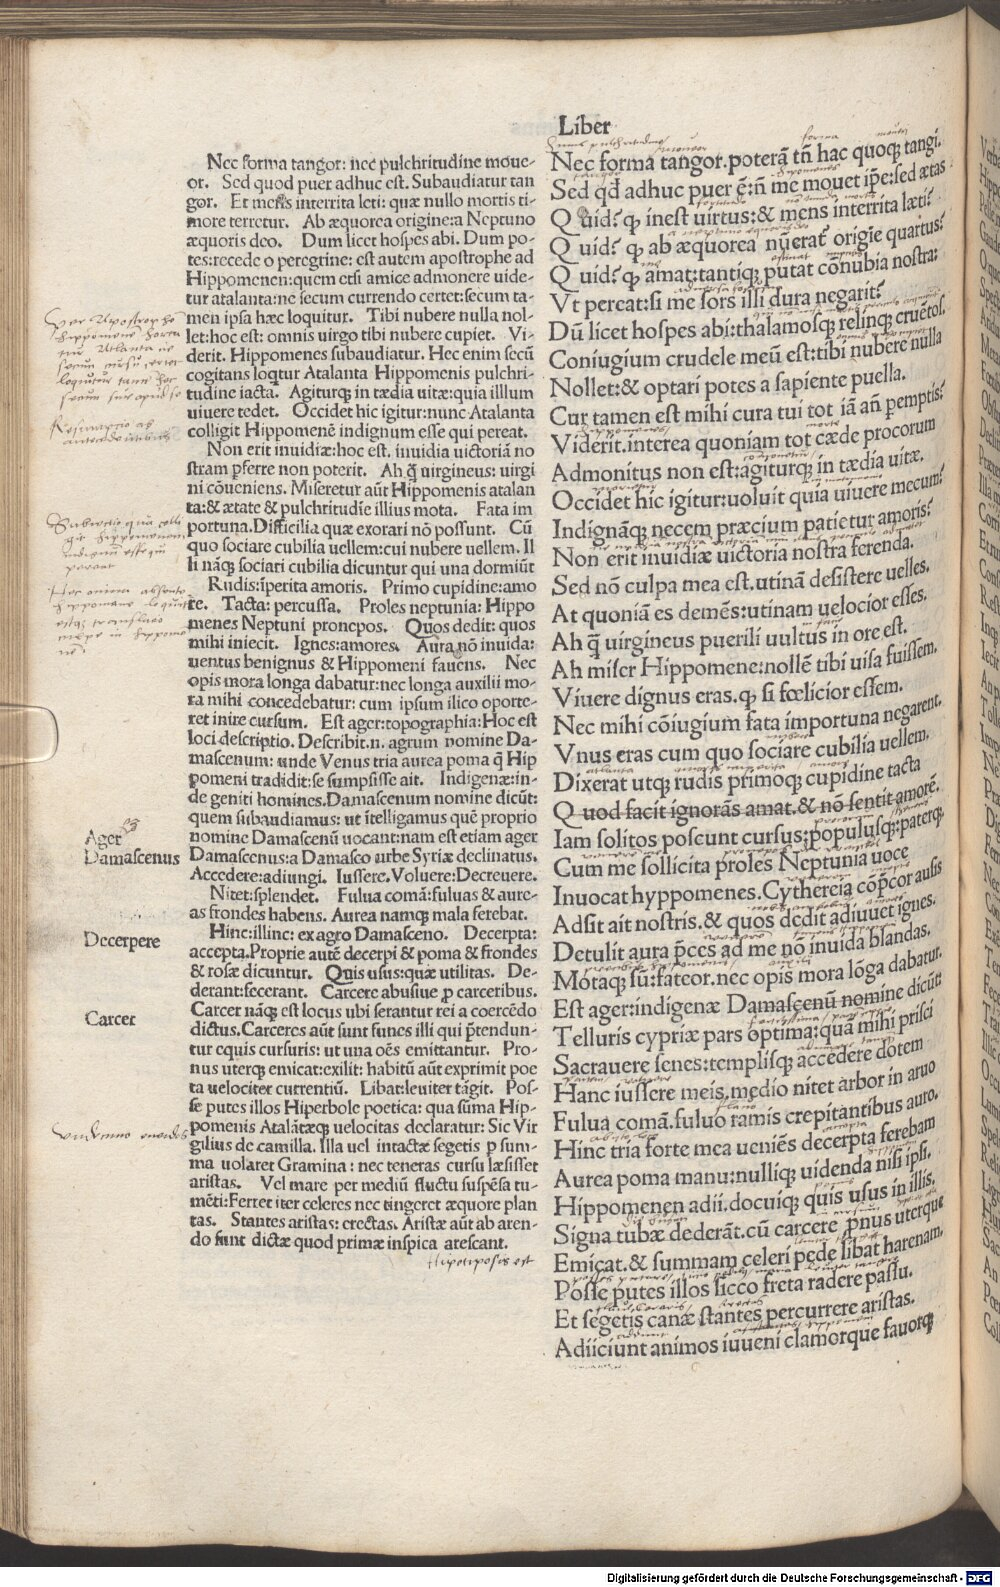 Liber
Nec forma tangor: nec pulchritudine moue-
or. Sed quod puer adhuc est. Subaudiatur tan
gor. Et mēs interrita leti: quæ nullo mortis ti-
more terretur. Ab æquorea origine: a Neptuno
æquoris deo. Dum licet hospes abi. Dum po-
tes: recede o peregrine: est autem apostrophe ad
Hippomenen: quem etsi amice admonere uide-
tur atalanta: ne secum currendo certet: secum ta-
men ipsa hæc loquitur. Tibi nubere nulla nol-
let: hoc est: omnis uirgo tibi nubere cupiet. Vi-
derit. Hippomenes subaudiatur. Hec enim secū
cogitans loqtur Atalanta Hippomenis pulchri-
tudine iacta. Agiturq; in tædia uitæ: quia illlum
uiuere tedet. Occidet hic igitur: nunc Atalanta
colligit Hippomenē indignum esse qui pereat.
Non erit inuidiæ: hoc est. inuidia uictoriā no
stram pferre non poterit. Ah q̄ uirgineus: uirgi
ni cōueniens. Miseretur aūt Hippomenis atalan
ta: & ætate & pulchritudīe illius mota. Fata im
portuna. Difficilia quæ exorari nō possunt. Cū
quo sociare cubilia uellem: cui nubere uellem. Il
li nāq; sociari cubilia dicuntur qui una dormiūt
Rudis: īperita amoris. Primo cupidine: amo
re. Tacta: percussa. Proles neptunia: Hippo
menes Neptuni pronepos. Quos dedit: quos
mihi iniecit. Ignes: amores. Aura nō inuida:
uentus benignus & Hippomeni fauens. Nec
opis mora longa dabatur: nec longa auxilii mo-
ra mihi concedebatur: cum ipsum ilico oporte-
ret inire cursum. Est ager: topographia: Hoc est
loci descriptio. Describit .n. agrum nomine Da-
mascenum: unde Venus tria aurea poma q̄ Hip
pomeni tradidit: se sumpsisse ait. Indigenæ: in-
de geniti homines. Damascenum nomine dicūt:
quem subaudiamus: ut ītelligamus quē proprio
nomine Damascenū uocant: nam est etiam ager
Damascenus: a Damasco urbe Syriæ declinatus.
Accedere: adiungi. Iussere. Voluere: Decreuere.
Nitet: splendet. Fulua comā: fuluas & aure-
as frondes habens. Aurea namq; mala ferebat.
Hinc: illinc: ex agro Damasceno. Decerpta:
accepta. Proprie autē decerpi & poma & frondes
& rosæ dicuntur. Quis usus: quæ utilitas. De-
derant: fecerant. Carcere abusiue p carceribus.
Carcer nāq; est locus ubi serantur rei a coercēdo
dictus. Carceres aūt sunt funes illi qui p̄tendun-
tur equis cursuris: ut una oēs emittantur. Pro-
nus uterq; emicat: exilit: habitū aūt exprimit poe
ta uelociter currentiū. Libat: leuiter tāgit. Pos-
se putes illos Hiperbole poetica: qua sūma Hip-
pomenis Atalātæq; uelocitas declaratur: Sic Vir
gilius de camilla. Illa uel intactæ segetis p sum-
ma uolaret Gramina: nec teneras cursu læsisset
aristas. Vel mare per mediū fluctu suspēsa tu-
mēti: Ferret iter celeres nec tingeret æquore plan
tas. Stantes aristas: erectas. Aristæ aūt ab aren-
do sunt dictæ quod primæ inspica arescant.
Hipotiposis est
Ager
Damascenus
Decerpere
Carcer
Nec forma tangor. poterā tn̄ hac quoq; tangi.
Sed qd adhuc puer ē: n̄ me mouet ip̄e: sed ætas
Quid? q inest uirtus: & mens interrita læti?
Quid? q ab æquorea nūerat origīe quartus?
Quid? q amat: tantiq; putat cōnubia nostra:
Vt pereat: si me sors illi dura negarit?
Dū licet hospes abi: thalamosq; relinq; cruētos.
Coniugium crudele meū est: tibi nubere nulla
Nollet: & optari potes a sapiente puella.
Cur tamen est mihi cura tui tot iā an̄ pemptis?
Viderit. interea quoniam tot cæde procorum
Admonitus non est: agiturq; in tædia uitæ.
Occidet hic igitur: uoluit quia uiuere mecum?
Indignāq; necem præcium patietur amoris?
Non erit inuidiæ uictoria nostra ferenda.
Sed nō culpa mea est. utinā desistere uelles.
At quoniā es demēs: utinam uelocior esses.
Ah q̄ uirgineus puerili uultus in ore est.
Ah miser Hippomene: nollē tibi uisa fuissem.
Viuere dignus eras. q si fœlicior essem.
Nec mihi cōiugium fata importuna negarent.
Vnus eras cum quo sociare cubilia uellem.
Dixerat utq; rudis primoq; cupidine tacta
Quod facit ignorās amat. & nō sentit amorē.
Iam solitos poscunt cursus: populusq; paterq;
Cum me sollicita proles Neptunia uoce
Inuocat hyppomenes. Cythereia cōp̄cor ausis
Adsit ait nostris. & quos dedit adiuuet ignes.
Detulit aura p̄ces ad me nō inuida blandas.
Motaq; sū: fateor. nec opis mora lōga dabatur.
Est ager: indigenæ Damascenū nomine dicūt:
Telluris cypriæ pars optima: quā mihi prisci
Sacrauere senes: templisq; accedere dotem
Hanc iussere meis. medio nitet arbor in aruo
Fulua comā. fuluo ramis crepitantibus auro.
Hinc tria forte mea ueniēs decerpta ferebam
Aurea poma manu: nulliq; uidenda nisi ipsi.
Hippomenen adii. docuiq; quis usus in illis.
Signa tubæ dederāt. cū carcere pnus uterque
Emicat. & summam celeri pede libat harenam.
Posse putes illos sicco freta radere passu.
Et segetis canæ stantes percurrere aristas.
Adiiciunt animos iuueni clamorque fauorq;
Digitalisierung gefördert durch die Deutsche Forschungsgemeinschaft - DFG